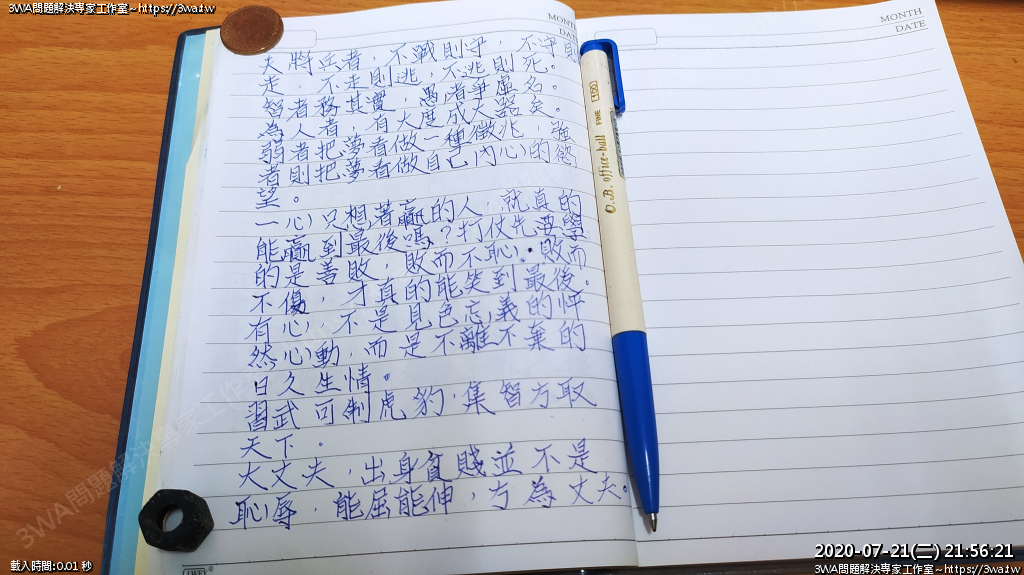 3WA問題解決專家工作室~https://3wa.tw
3WA問題解決專家工作室~https://3wa.tw
MONTH
DATE
MONTH
DATE
夫將兵者，不戰則守，不守則
走，不走則逃，不逃則死。
智者務其實，愚者爭虛名。
為人者，有大度成大器矣。
弱者把夢看做一種徵兆，強
者則把夢看做自己內心的慾
望。
一心只想著贏的人，就真的
能贏到最後嗎？打仗先要學
的是善敗，敗而不恥，敗而
不傷，才真的能笑到最後。
有心，不是見色忘義的怦
然心動，而是不離不棄的
日久生情。
習武可制虎豹，集智方取
天下。
大丈夫，出身貧賤並不是
恥辱，能屈能伸，方為丈夫。
O.B. office-ball FINE 100
3WA問題解決專家工作室
2020-07-21(二) 21:56:21
載入時間:0.01 秒
3WA問題解決專家工作室~https://3wa.tw